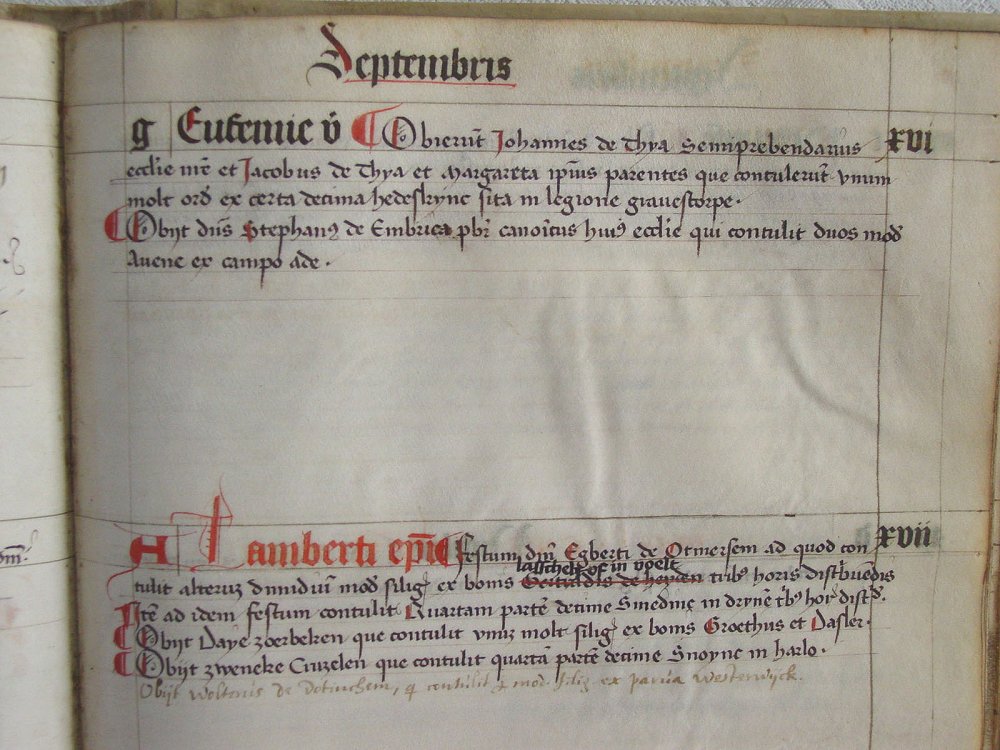 Septembris
g Eufemie v̄ Obierūt Johannes de Thya Semiprebendarius xvi
ecclie nr̄e et Jacobus de Thya et Margareta ipīus parentes que contulerūt vnum
molt ord ex certa decima hedeskync sita in legione gravestorpe.
Obijt dn̄s Stephanus de Embrica pbr̄ canonicus huius ecclie qui contulit duos mod
Avene ex campo ade.
A Lamberti ep̄i Festum dn̄i Egberti de Otmersem ad quod con xvii
lasschelt of in vpelt
tulit alterum dimidiū mod silig ex bonis de tribus horis distribuēdis
Itē ad idem festum contulit Quartam partē decime Smedinc in drynē hor dist
Obijt Daye zoerbeken que contulit vnum molt silig ex bonis Groethus et Dasler.
Obijt zweneke Cruzelen que contulit quartā partē decime Snoync in harlo.
Obijt Wolterus de Dotinchem, q contulit mod silig ex parua Westerwyck.